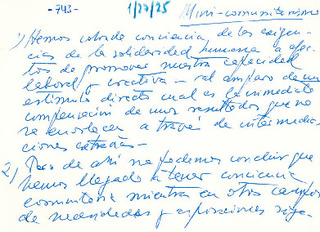 -743-
1/27/25
Mini-comunitarismo
1) Hemos cobrado conciencia de las exigen-
cias de la solidaridad humana a efec-
tos de promover nuestra capacidad
laboral y creativa - al amparo de un
estímulo directo cual es la inmediata
compensación de unos resultados que no
se enturbecen a través de intermedia-
ciones extrañas -
2) Pero de ahí no podemos concluir que
hemos llegado a tener conciencia
comunitaria mientras en otros campos
de necesidades y aspiraciones